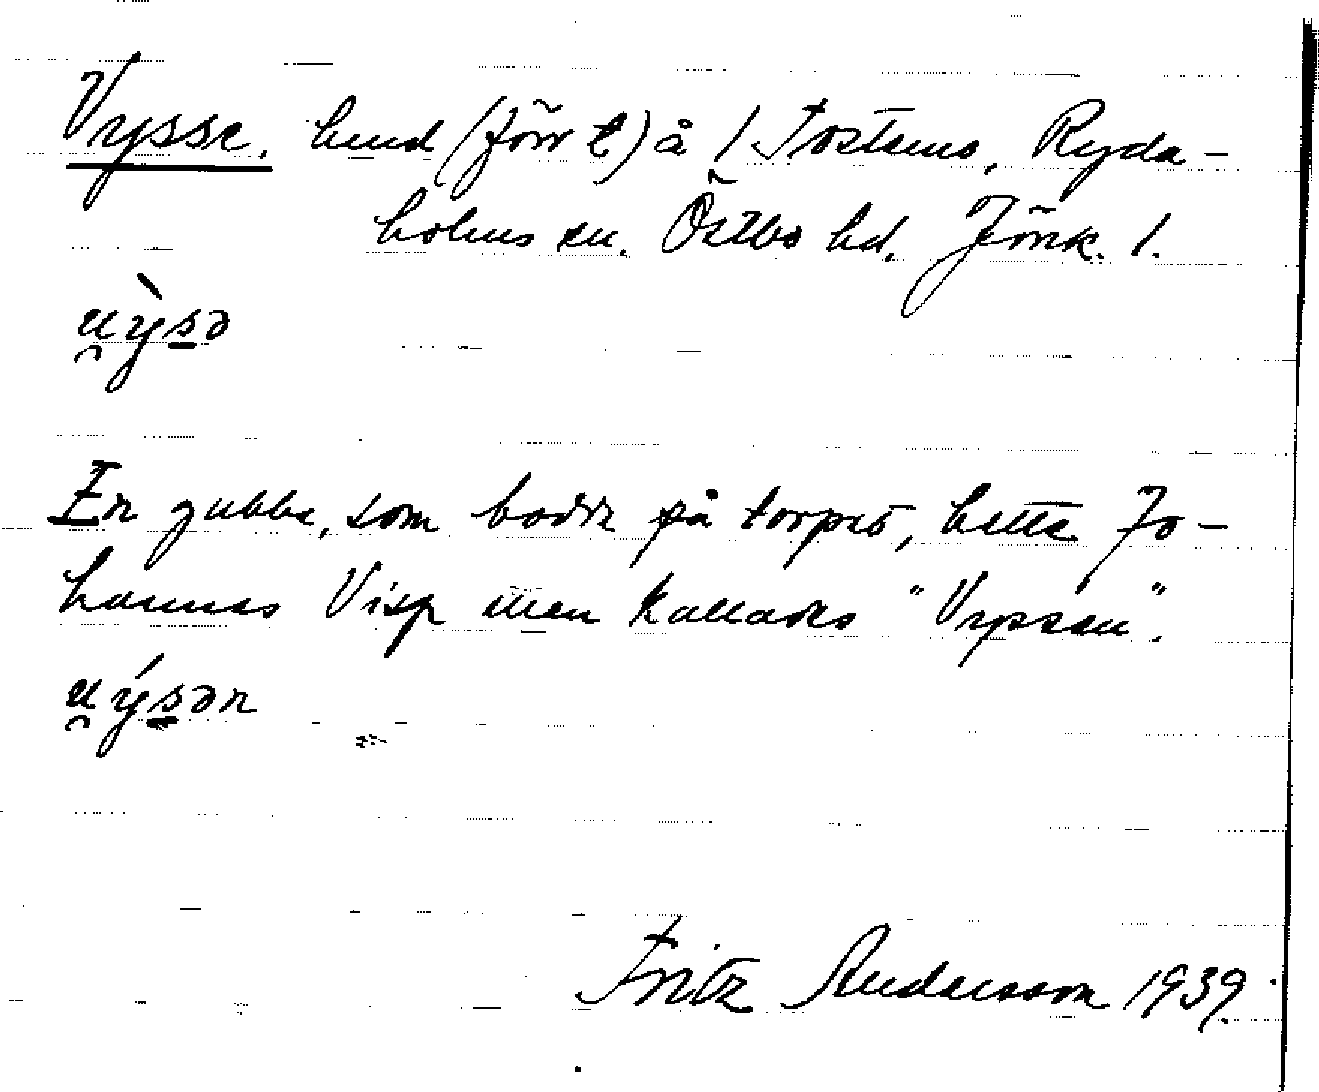 Vysse. lund (förr t) å / Tostens, Ryda-
holms sn. Östbo hd. Jönk. l.
u̯ỳsə
En gubbe, som bodde på torpet, hette Jo-
hannes Visp men kallades "Vyssen".
u̯ýsən
Fritz Andersson 1939.